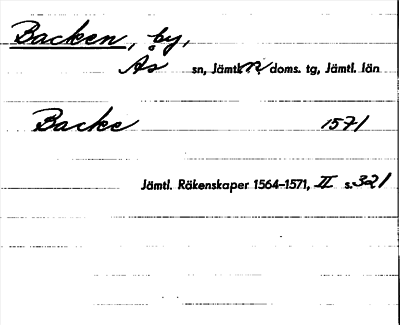 Backen, by,
Ås sn, Jämtl. N doms. tg, Jämtl. län
Backe 1571
Jämtl. Räkenskaper 1564–1571, II s. 321